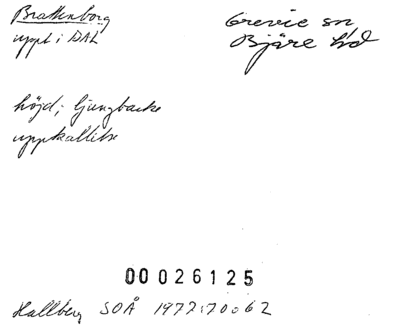 Brattenborg
uppt i DAL
Grevie sn
Bjäre hd
höjd; ljungbacke
uppkallelse
00026125
Hallberg SOÅ 1972:70 o 62